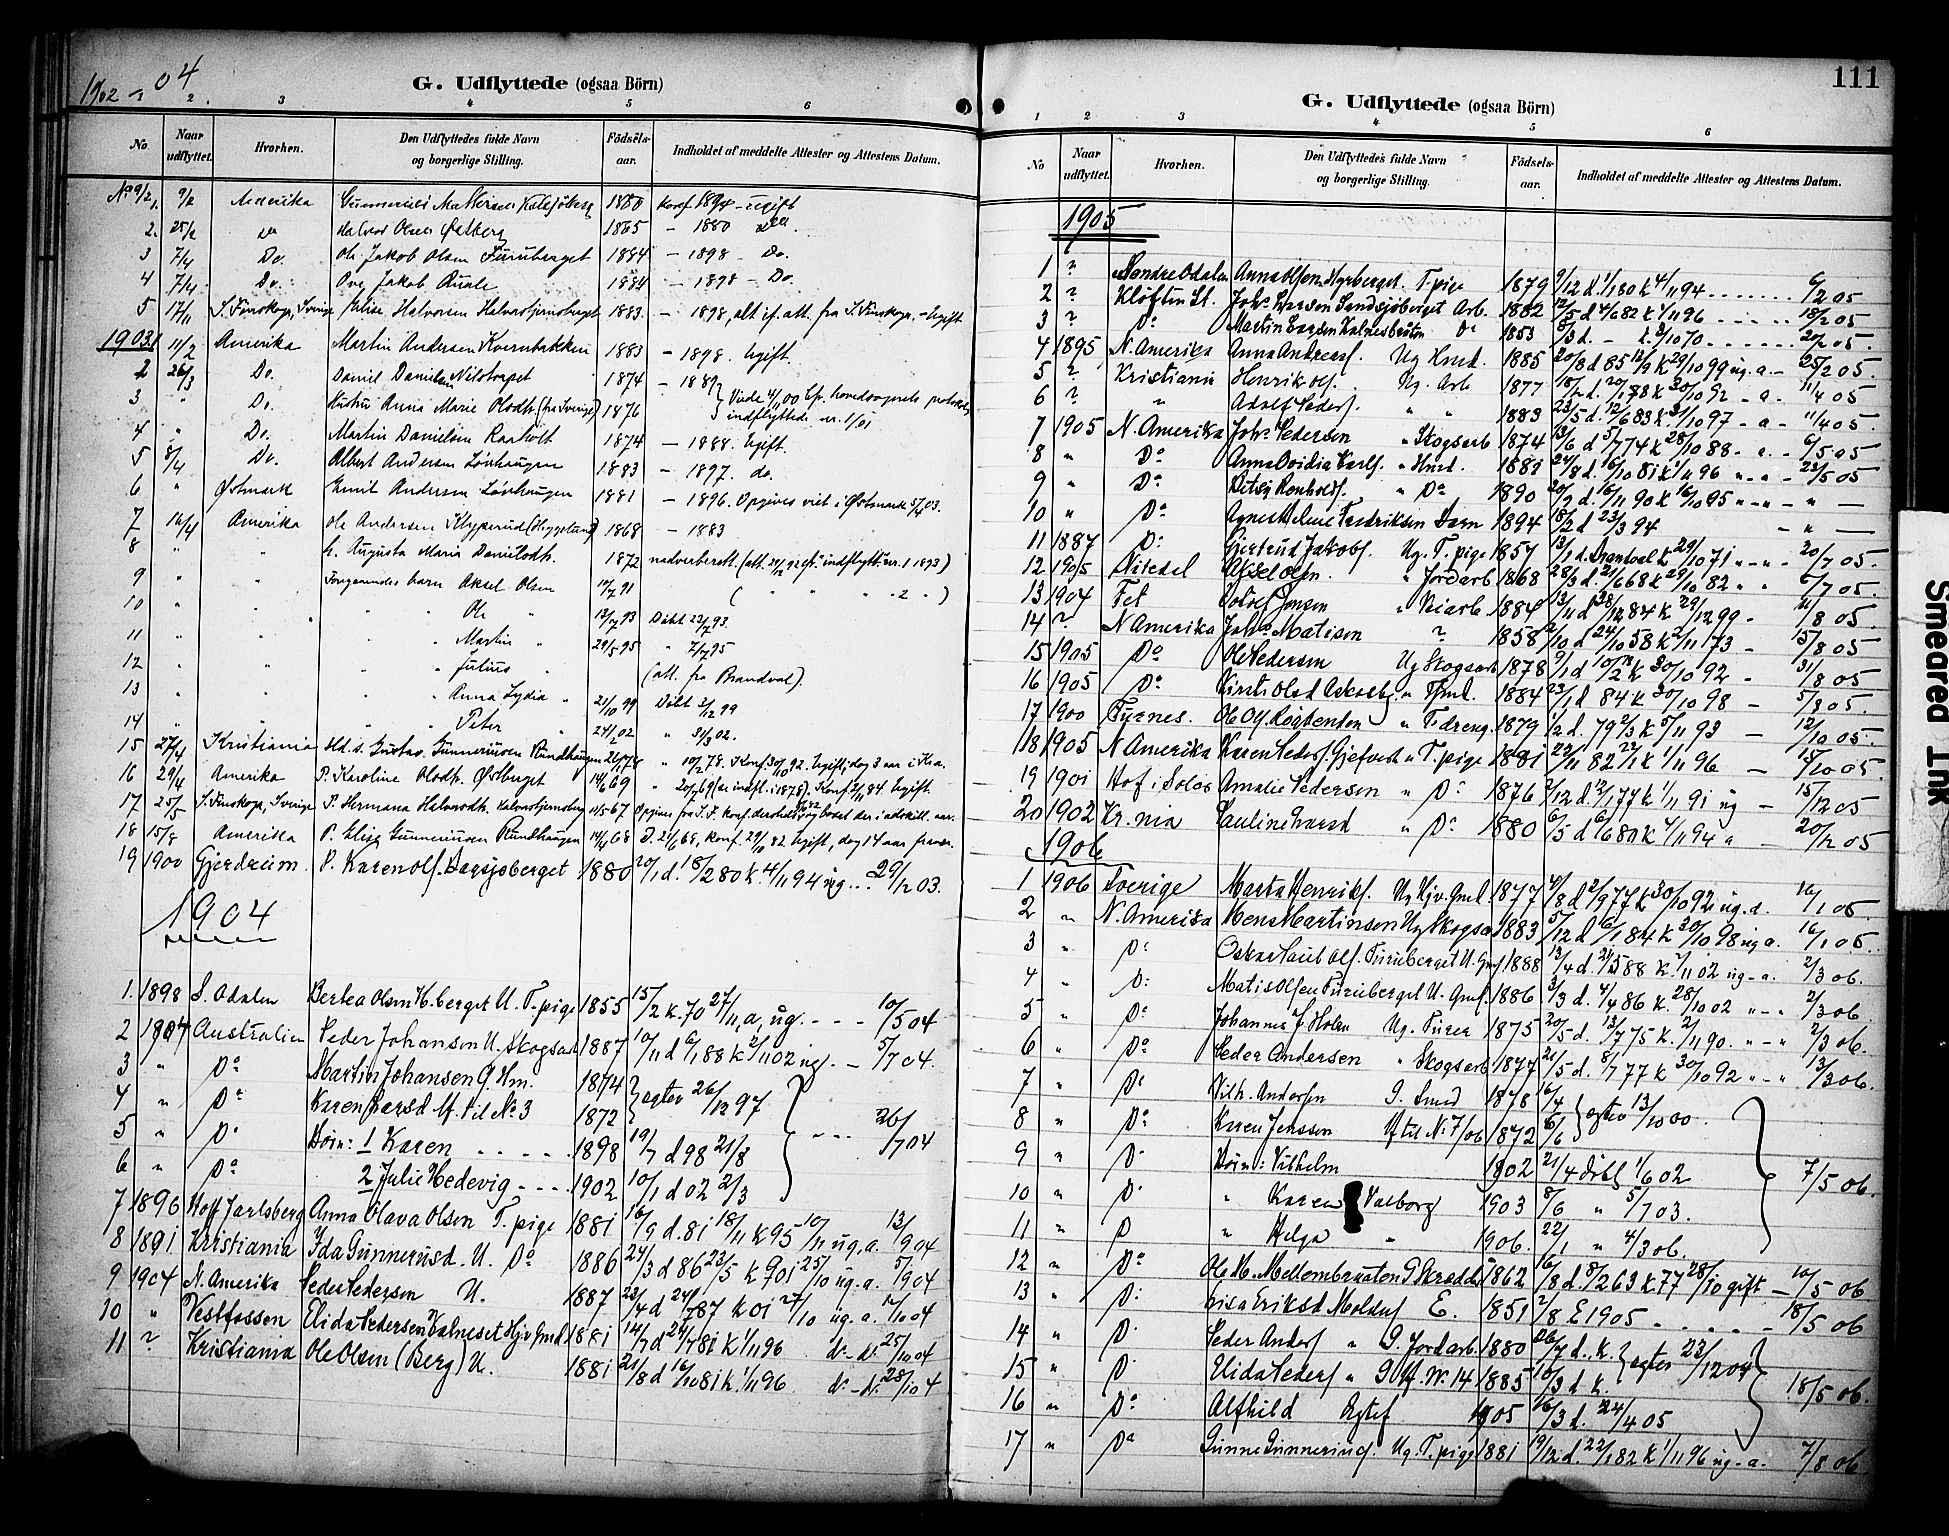 1902 - 04
G. Udflyttede (ogsaa Börn)
1 2. 3 4 5 6
No. Naar udflyttet. Hvorhen. Den Udflyttedes fulde Navn og borgerlige Stilling. Födsels-aar. Indholdet af meddelte Attester og Attestens Datum.
1. 9/2 Amerika 1880 Konf 1894 - ugift
2. 25/2 Do Halvor Olsen Østberg 1865 - 1880 Do
3 7/4 Do. Ole Jakob Olsen Furuberget 1884 - 1898 - Do.
4 7/4 Do. Ove Jakob Quale 1884 - 1898 - Do.
5 17/11 S. Finskoga, Sverige Halvorsen 1883 - 1898, alt if. att. fra S. Finskoga, - Ugift
1903
1 11/2 Amerika Martin Andersen Kvernbakken 1883 - 1898. Ugift.
2 26/3 Do. Daniel Danielsen Nilstorpet 1874 - 1889
3 " Do. Hustru Anna Marie Olsdtr. (fra Sverige) 1876 Viede 4/11 00 indflyttede nr. 1/01
4 " Do. Martin Danielsen Raaholt 1874 - 1888. Ugift.
5 8/4 Do. Albert Andersen Lövhaugen 1883 - 1897. do.
6 " Østmark Emil Andersen Lövhaugen 1881 - 1896. Opgives viet i Østmark 5/7 03.
7 16/4 Amerika Ole Andersen Klypperud 1868 - 1883
8 " " h. Augusta Maria Danielsdtr. 1872 nadverberett. (att. indflytt. nr. 1 1893)
9 " " Foregaaendes barn Aksel Olsen 10/7 91 ( " " " 2 " )
10 " " " " Ole " 13/7 93 Döbt 23/7 93
11 " " " " Martin " 29/5 95 " 7/7 95
12 " " " " Julius " (att. fra Brandval).
13 " " " " Anna Lydia " 21/10 99 Döbt 3/12 99
14 " " " " Peter " 24/1 02 " 31/3 02.
15 27/4 Kristiania Gustav Gunneriusen Rundhaugen Konf. 30/10 92. Ugift, dog 3 aar i Kra.
16 29/4 Amerika P. Karoline Olsdtr. Østberget 14/6 69 Konf 84 Ugift.
17 25/5 S. Finskoga, Sverige P. Hermana Halvorsdtr. Halvorstjernsberg 11/5-67
18 15/8 Amerika P. Elise Gunneriusen Rundhaugen 14/4 68 D. 21/6 68, konf. 29/10 82 Ugift, dog 14 aar
19 1900 Gjerdrum. P. Karen Ols. 1880 20/1 d. 18/2 80 k. 4/11 94 ug... 29/12 03.
1904
1. 1898 S. Odalen Bertea Olsen H.berget U. T. pige 1855 15/2 k. 70 27/11, a, ug. - - - 10/5 04
2 1904 Australien Peder Johansen U. Skogsarb 1887 10/11 d 6/1 88 k 2/11 02 ug. - 5/7 04.
3 " Do Martin Johansen G. Hm. 1874
4 " Do Karen Larsd Hf. til No 3 1872 } egtev 26/12 97
5 " Do Börn: 1 Karen . . . . . 1898 19/7 d 98 21/8 26/7 04
6 " Do 2 Julie Hedevig - - - . 1902 10/1 d 02 2/3
7 1896 Hoff Jarlsberg Anna Olava Olsen T. pige 1881 16/9 d. 81 18/11 k 95 10/11 ug, a. 13/9 04
8 1891 Kristiania Ida Gunnerusd. U. Do 1886 24/3 d 86 23/5 k 901 25/10 ug. a. 5/9 04
9 1904 N. Amerika Peder Pedersen U. 1887 23/4 d 24/7 87 k 01 27/10 ug. a. 12/10 04
10 " Vestfossen Elida Pedersen Kalneset Hjv. Gmd. 1881 14/7 d 24/7 81 k 1/11 96 do - do. 25/10 04
11 ? Kristiania Ole Olsen (Berg) U. 1881 21/8 d 16/10 81 k. 1/11 96 do - do. 28/10 4
111
G. Udflyttede (ogsaa Börn)
1 2 3 4 5 6
No Naar udflyttet. Hvorhen. Den Udflyttedes fulde Navn og borgerlige Stilling. Födsels-aar. Indholdet af meddelte Attester og Attestens Datum.
1905
1 ? Söndre Odalen Anna Olsen Myrberget. T. pige 1879 9/12 d. 1/1 80 k 4/11 94 ....... 6/2 05
2 ? Klöften St. Johs Larsen Sandsjöberget Arb. 1882 12/5 d 4/6 82 k 1/11 96 ..... 18/2 05
3 ? Do Martin Larsen Kalnesbraten Do 1853 70 ...... 20/2 05.
4 1895 N. Amerika Anna Andreasf. Ug Hmd. 1885 20/8 d 85 k 29/10 99 ug. a. - 25/2 05
5 ? Kristiania Henrik Ols. Ug. Arb 1877 18/12 d. 20/1 78 k 30/10 92 - a. 11/4 05
6 ? " Adolf Peders. " " 1883 23/5 d. 12/6 83 k. 31/10 97 - a - 11/4 05.
7 1905 N. Amerika Johs Pedersen " Skogsarb 1874 13/6 d 5/7 74 k 28/10 88 - a. - 6/5 05
8 " Do Anna Ovidia Karls. " Hmd. 1881 24/8 d. 16/10 81 k 1/11 96 " - a - 23/5 05
9 " Do " Do 1890 20/9 d. 16/11 90 k 16/10 95 " - " - " -
10 " Do Fredriksen Barn 1894 18/2 d 23/3 94 - " -
11 1887 Do Gjertrud Jakobs. Ug. T. pige 1857 13/1 d. Brandval k 29/10 71 " - " - 20/7 05.
12 1905 Nitedal Aksel Olsen. " Jordarb 1868 28/3 d. 21/6 68 k 29/10 82 " " 6/7 05.
13 1904 Fet Jensen " Veiarb 1884 13/11 d 28/12 84 k 29/12 99 - 11/8 05.
14 ? N Amerika Johs Matisen ? 1858 2/10 d 24/10 58 k 2/11 73 - 15/8 05
15 1905 Do Ole Pedersen Ug Skogsarb 1878 k 30/10 92 - 31/8 05
16 1905 Do Kirsti Olsd Askosberg " Hmd. 1884 23/1 d 84 k 30/10 98 - 5/9 05.
17 1900 Furnes. Ole Ols. " T. dreng 1879 1/2 d. 79 2/3 k 5/11 93 - 12/10 05.
18 1905 N Amerika Karen Peders. Gjefvert " T. pige 1881 22/11 82 22/1 k 1/11 96 - 15/10 05.
19 1901 Hof i Solör Amalie Pedersen " Do 1876 2/12 d 12/1 77 k 1/11 91 ug - 15/12 05
20 1902 Kr. nia Pauline Larsd " Do 1880 6/5 d 6/6 80 k 4/11 94 a - 20/12 05
1906
1 1906 Sverige Marta Henriks. Ug Hjv. Gmd. 1877 4/8 d 2/9 77 k 30/10 92 ug. a. 16/1 06.
2 " N. Amerika Mens Martinsen Ug Skogsa 1883 5/12 d 6/1 84 k 30/10 98 ug a. 16/1 06.
3 " Do Oskar Laub Ols. Furuberget U. Gms 1888 13/4 d. 21/5 88 k. 2/11 02 ug - a. 2/3 06.
4 " Do Matis Olsen Furuberget U. Gms. 1886 3/3 d. 4/4 86 k. 28/10 02 " - " 2/3 06.
5 " Do Johannes Holen Ug. Furer 1875 20/5 d. 13/7 75 k. 2/11 90. " - " 2/3 06.
6 " Do Peder Andersen " Skogsarb 1877 21/5 d. 8/7 77 k 30/10 92 " - " 13/3 06.
7 " Do Vilh. Andersen G. Smed 1878 16/4
8 " Do Karen Jenssen Hf til No 7/06 1872 6/6 } egtev 13/10 00
9 " Do Börn: Vilhelm 1902 21/4 döbt 1/6 02
10 " Do " Karen Valborg 1903 8/6 " 5/7 03. 7/5 06.
11 " Do " Helga " 1906. 22/1 " 4/3 06.
12 " Do Ole M. Mellembraaten G Skrædder 1862 16/8 d. 8/2 63 k 77 28/10 gift - 10/5 06
13 " Do Lisa Eriksd Moldus E. 1851 2/8 E 1905 - . . . . - 18/5 06
14 " Do Peder Anders " G. Jordarb. 1880 26/7 d., k.
15 " Do Elida Peders " G Hf. No. 14 1885 10/3 d k. } egtev 23/12 04
16 " Do Alfhild Egtef 1905 16/3 d. 24/4 05 18/5 06.
17 " Do Gunne Gunneriusd. Ug. T. pige 1881 19/12 d. 22/1 82 k 1/11 96 ug - a. 7/8 06
Smeared Ink